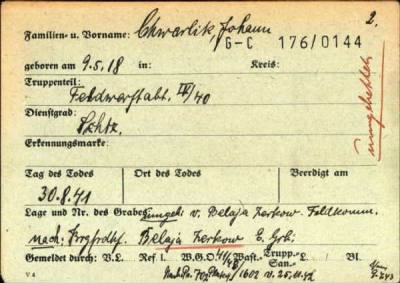 2.
Familien- u. Vorname: Chwarlik, Johann
G-C 176/0144
geboren am 9.5.18 in: Kreis:
Truppenteil:
Feldwerftabt. IV/40
Dienstgrad:
Schtz.
Erkennungsmarke:
umgebettet
Tag des Todes Ort des Todes Beerdigt am
30.8.41
Lage und Nr. des Grabes v. Belaja Zerkow Feldkomm.
nach: Belaja Zerkow E. Grb:
Gemeldet durch: V.L. Ref I. W.G.O. Wast- Trupp- San.- L. Bl.
1602 v. 25.11.42
V 4